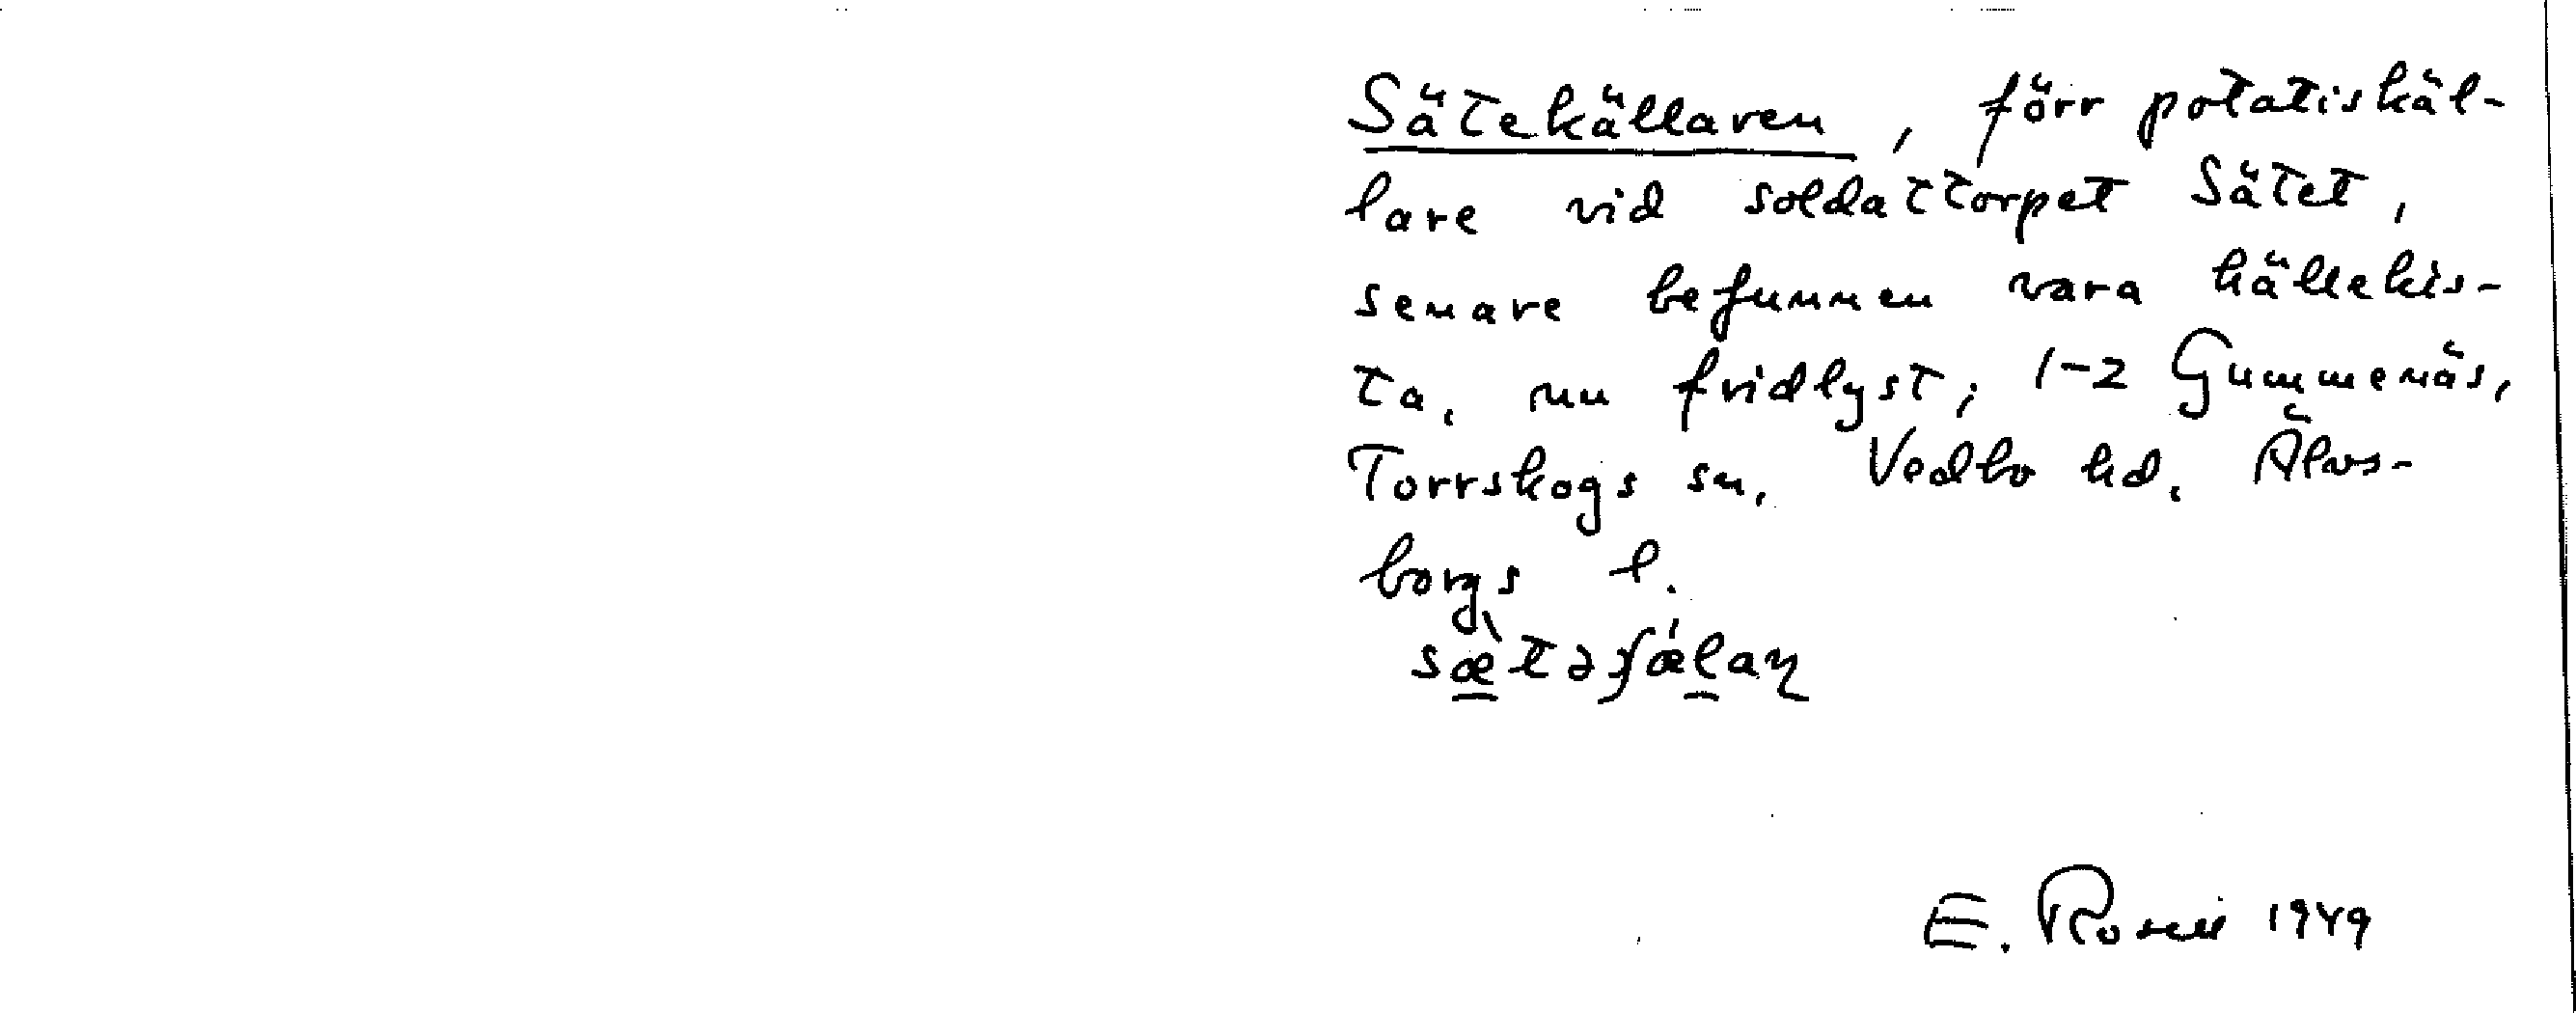 Sätekällaren, förr potatiskäl-
lare vid soldattorpet Sätet,
senare befunnen vara hällekis-
ta, nu fridlyst; 1-2 Gummenäs,
Torrskogs sn. Vedbo hd. Älvs-
borgs l.
E. Rosén 1949